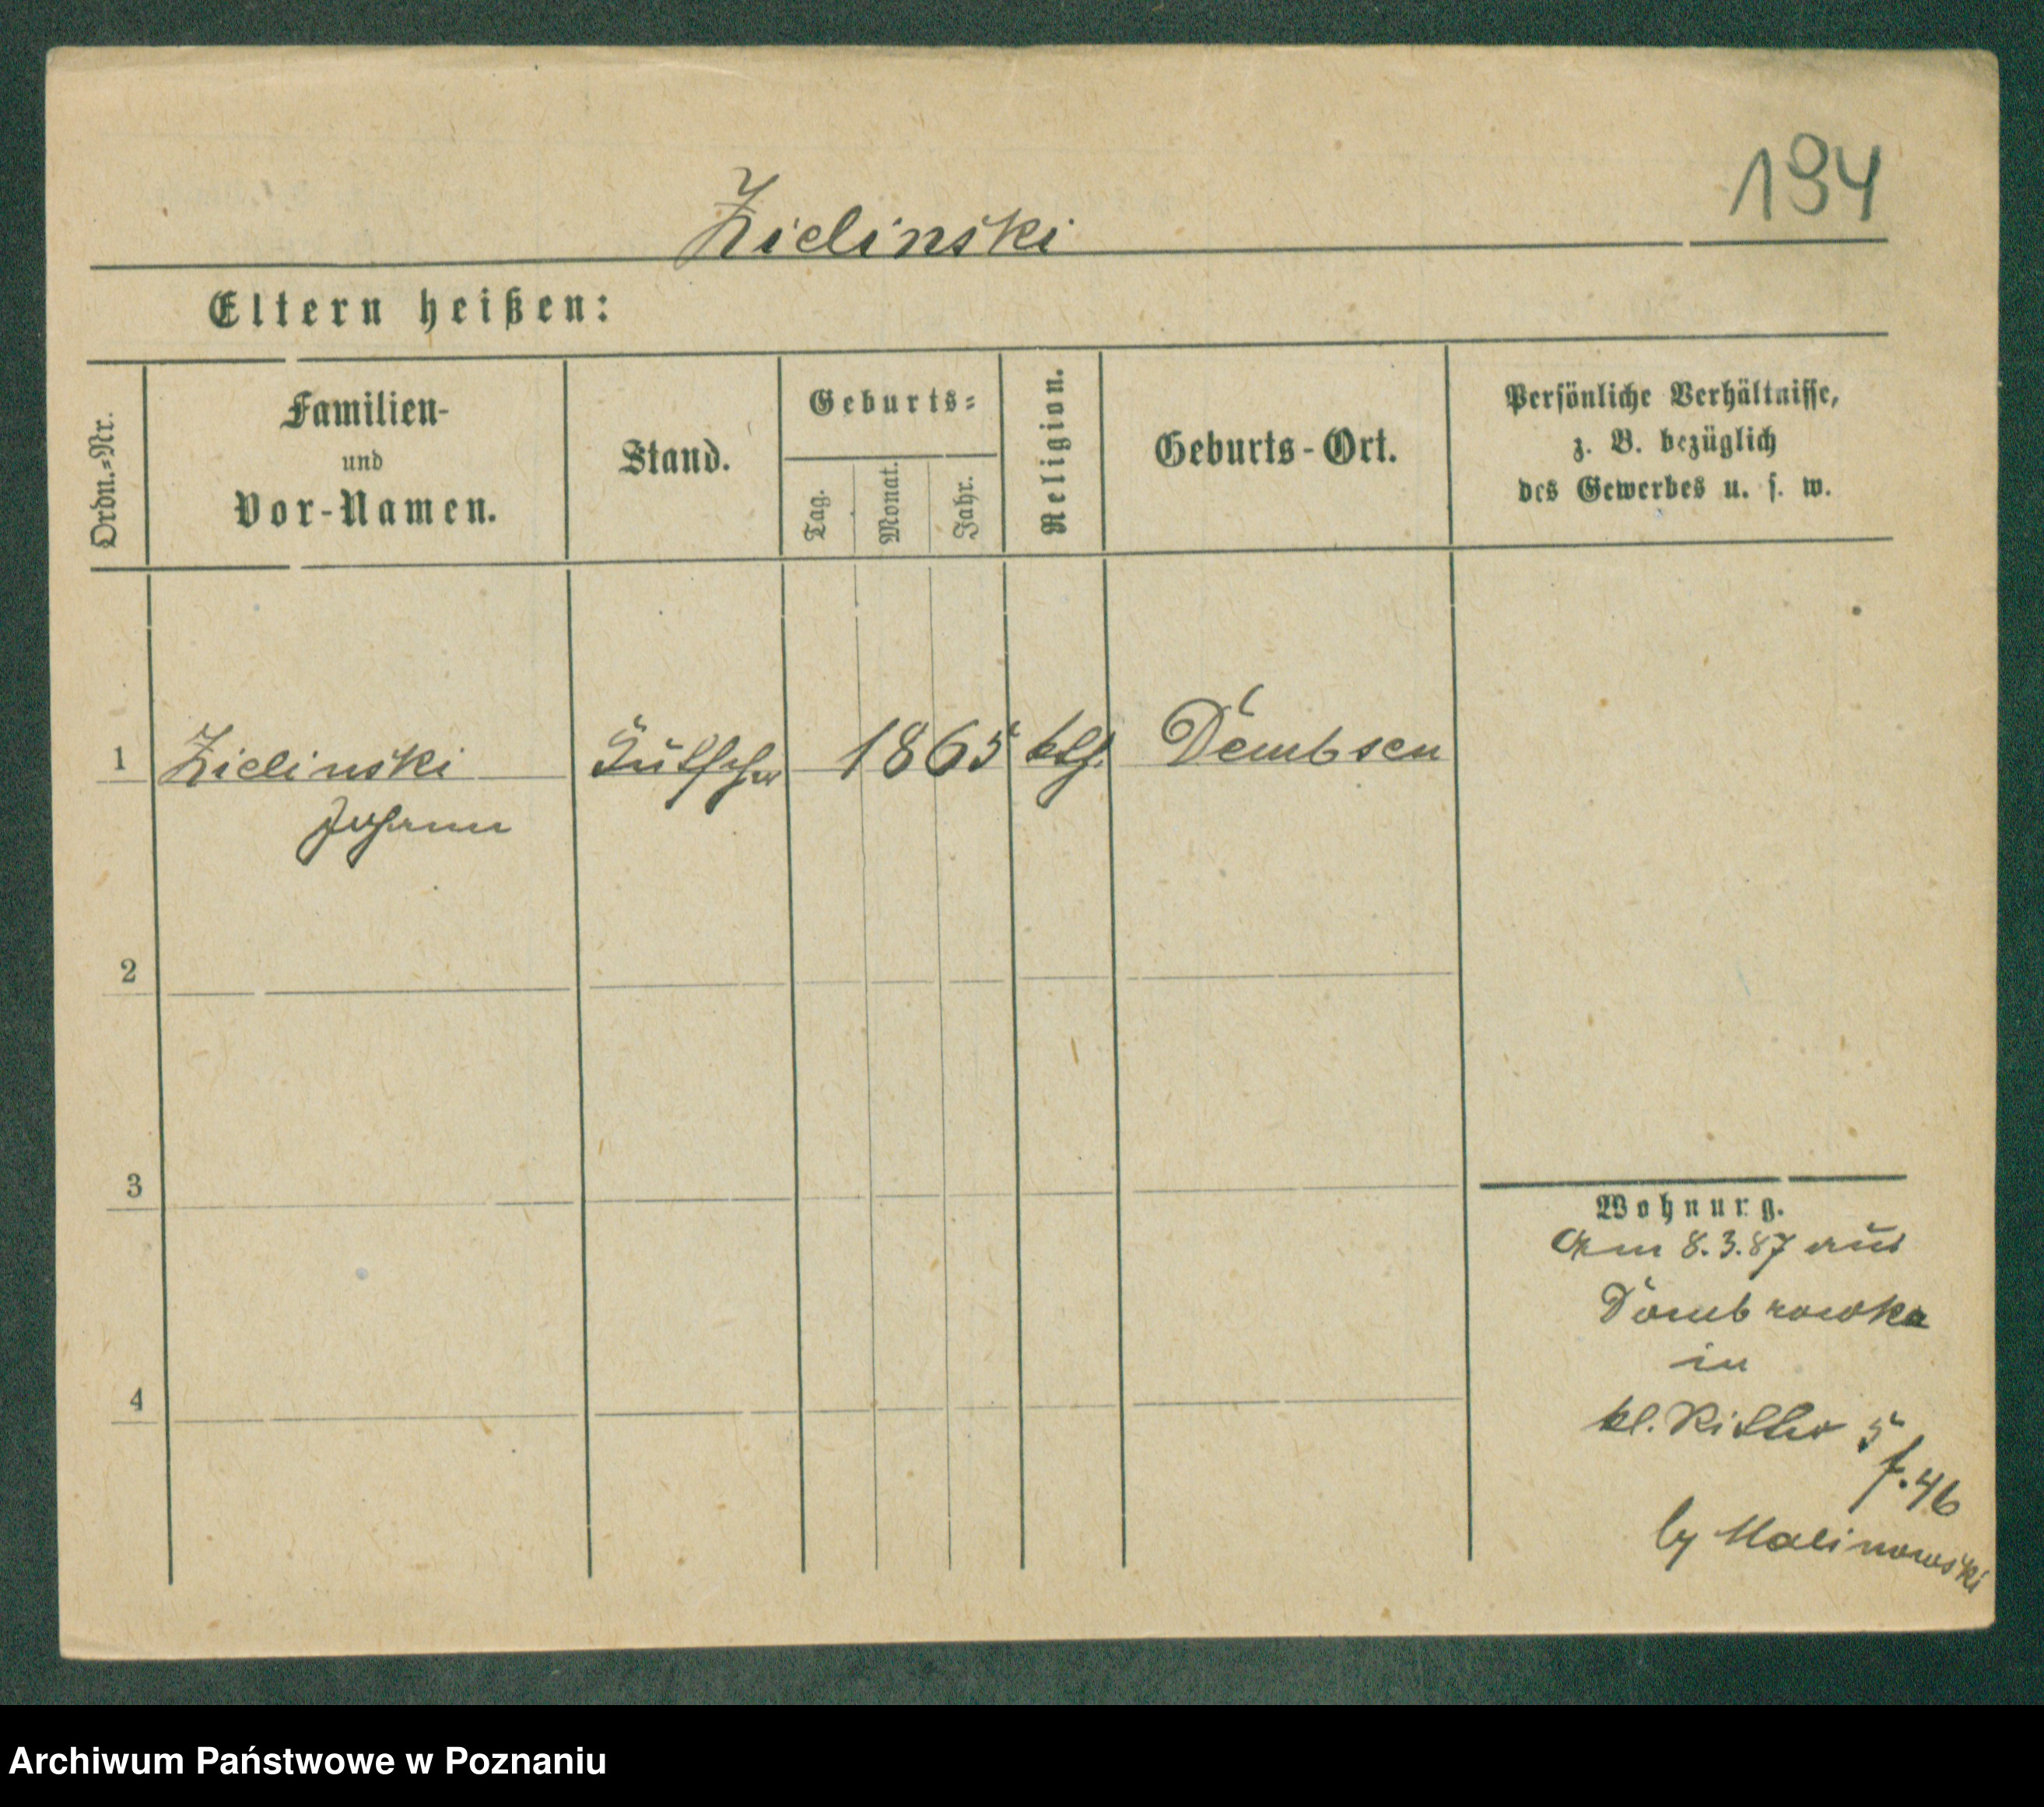 194
Zielinski
Eltern heißen:
Ordn.=Nr.
Familien-
und
Vor-Namen.
Stand.
Geburts=
Tag.
Monat.
Jahr.
Religion.
Geburts-Ort.
Persönliche Verhältnisse,
z. B. bezüglich
des Gewerbes u. s. w.
1 Zielinski 1865 kth. Dembsen
Johann
2
3
4
Wohnung.
Am 8.3.87 aus
Dombrowka
in
kl. Ritter 5
f. 46
by Malinowski
Archiwum Państwowe w Poznaniu